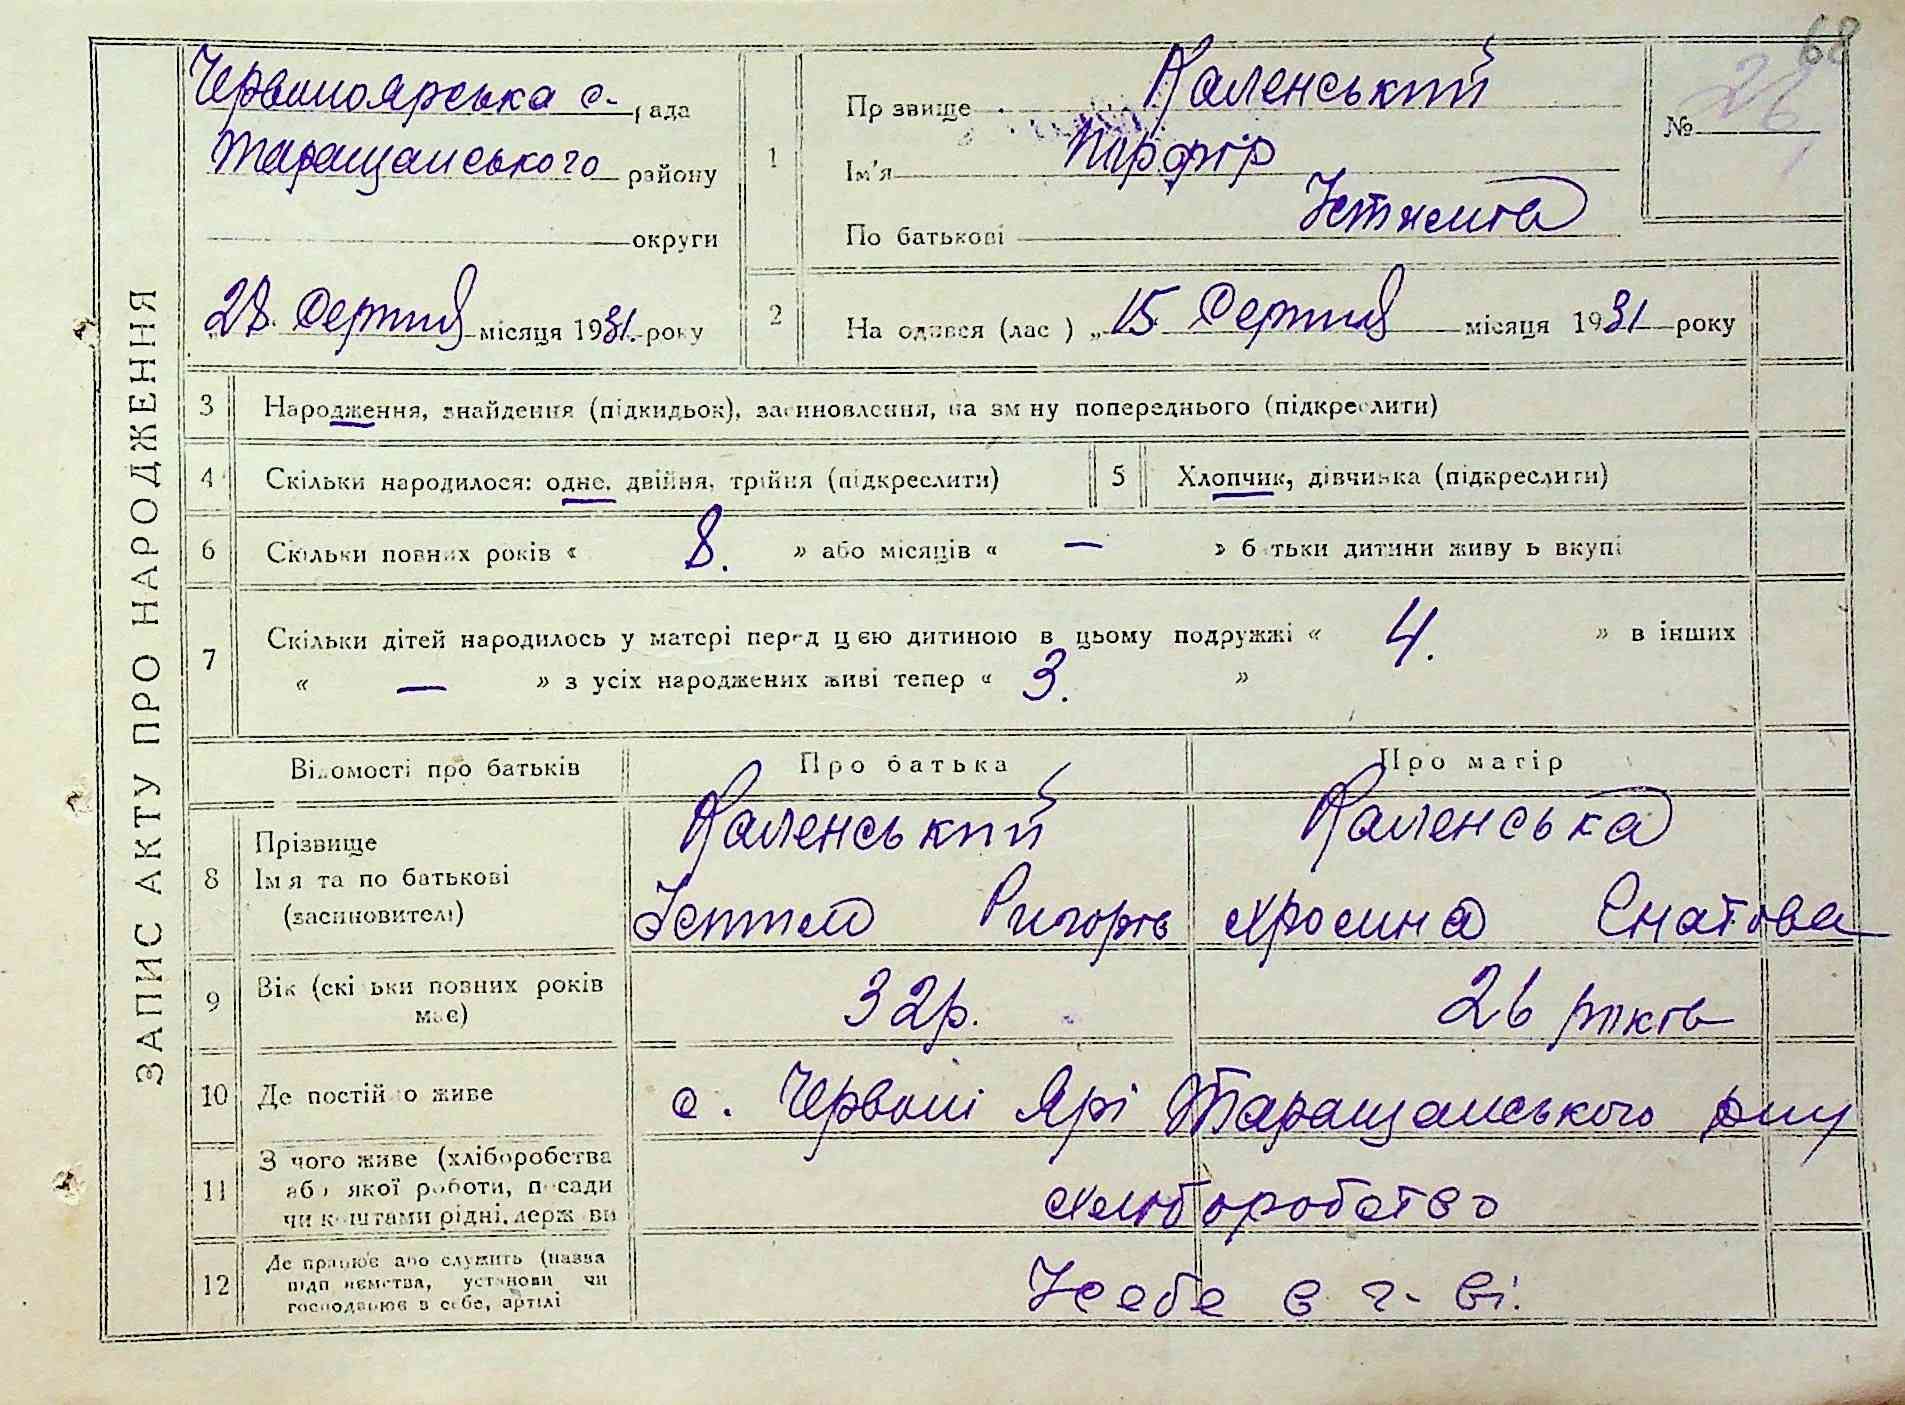 68
ЗАПИС АКТУ ПРО НАРОДЖЕННЯ
Червоноярська с. рада
Таращанського району
округи
„28. Серпня місяця 1931. року
1
Прізвище Каленський
Ім'я Пірфір
По батькові
№ 26
2 Народився (лась) „15 Серпня місяця 1931 року
3 Народження, знайдення (підкидьок), засиновлення, на зміну попереднього (підкреслити)
4 Скільки народилося: одне, двійня, трійня (підкреслити)
5 Хлопчик, дівчинка (підкреслити)
6 Скільки повних років « 8. » або місяців « — » батьки дитини живуть вкупі
7 Скільки дітей народилось у матері перед цією дитиною в цьому подружжі « 4. » в інших
« — » з усіх народжених живі тепер « 3. »
Відомості про батьків Про батька Про матір
8 Прізвище
Ім'я та по батькові
(засиновителі)
Каленський
Ригорів
Каленська
Хросина Єнатова
9 Вік (скільки повних років
має)
32 р. 26 років
10 Де постійно живе с. Червоні Ярі Таращанського р-ну
11 З чого живе (хліборобства
або якої роботи, посади
чи коштами рідні, держави
хліборобство
12 Де працює або служить (назва
підприємства, установи чи
господарює в себе, артілі
У себе в г-ві.